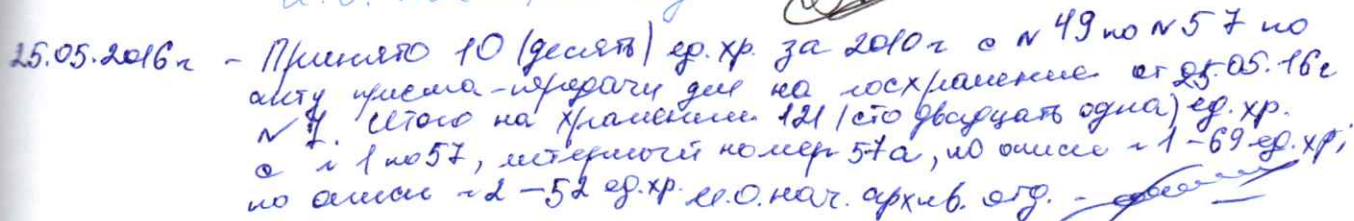 25.05.2016г - Принято 10 (десять) ед.хр. за 2010г с №49 по №57 по
акту приема-передачи дел на госхранение от 25.05.16г
№7. Итого на хранении 121 (сто двадцать одна) ед.хр.
с №1 по 57, литерный номер 57а, по описи №1-69 ед.хр;
по описи №2-52 ед.хр. И.О.нач. архив. отд. -